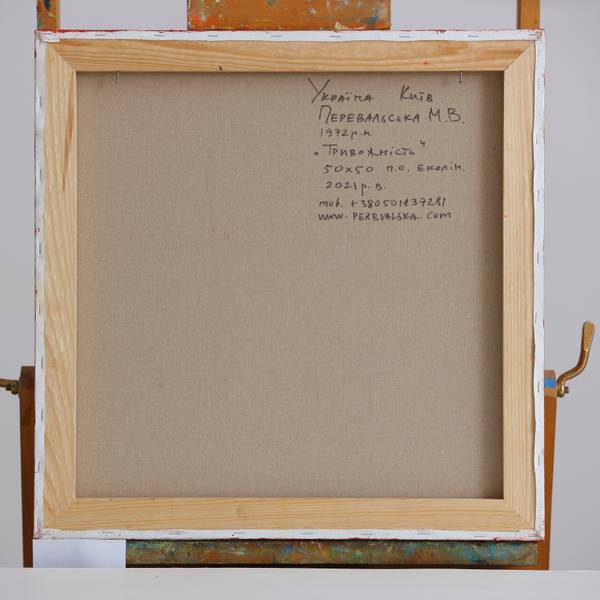 Україна Київ
Перевальська М.В.
1972р.н
„Тривожність"
50х50 п.о. еколін.
2021р.в.
mob. +380501837281
www.PEREVALSKA.com